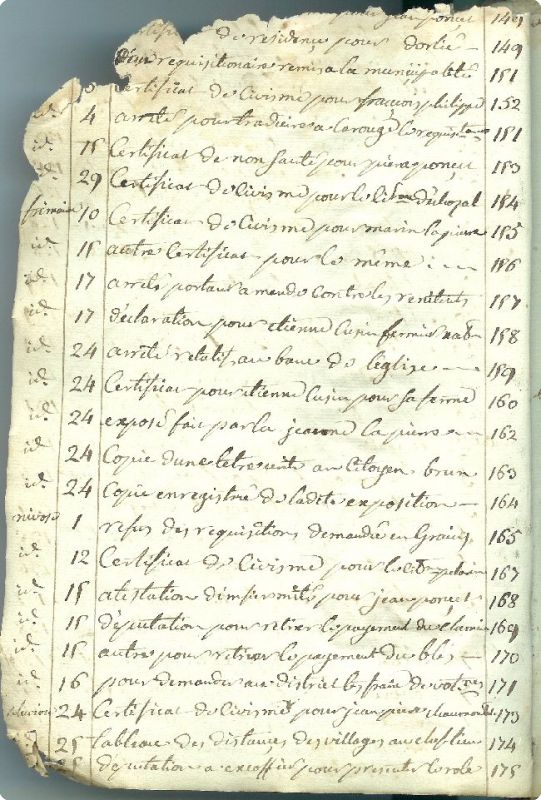 pour jean ponçet 149
de residençe pour dorlié 149
requisitionaire remis a la municipalité 151
Certificat de Civisme pour françois philippe 152
id. 4 arreté pour traduire a Carouge le requis 151
id. 15 Certificat de non santé pour pierre ponçet 153
id. 29 Certificat de Civisme pour le 154
frimaire 10 Certificat de Civisme pour marin lapierre 155
id. 15 autre Certificat pour le même 156
id. 17 arreté portant amande Contre les 157
id. 17 déclaration pour etienne Cusin fermier 158
id. 24 arreté relatif au banc de l'églize 159
id. 24 Certificat pour etienne Cusin pour sa ferme 160
id. 24 exposé fait par la jeanne lapierre 162
id. 24 Copie dune letre au Citoyen brun 163
id. 24 Copie enregistrée de ladite exposition 164
nivose 1 refus des requisitions demandée en Grains 165
id. 12 Certificat de Civisme pour le 167
id. 15 atestation dinfirmités pour jean ponçet 168
id. 15 députation pour retirer le payement du 169
id. 15 autre pour retirer le payement du bled 170
id. 16 pour demander au district les frais de 171
pluviose 24 Certificat de Civisme pour jean pierre 173
id. 25 tableau des distances des villages au chef lieu 174
25 députation a pour presenter le role 175